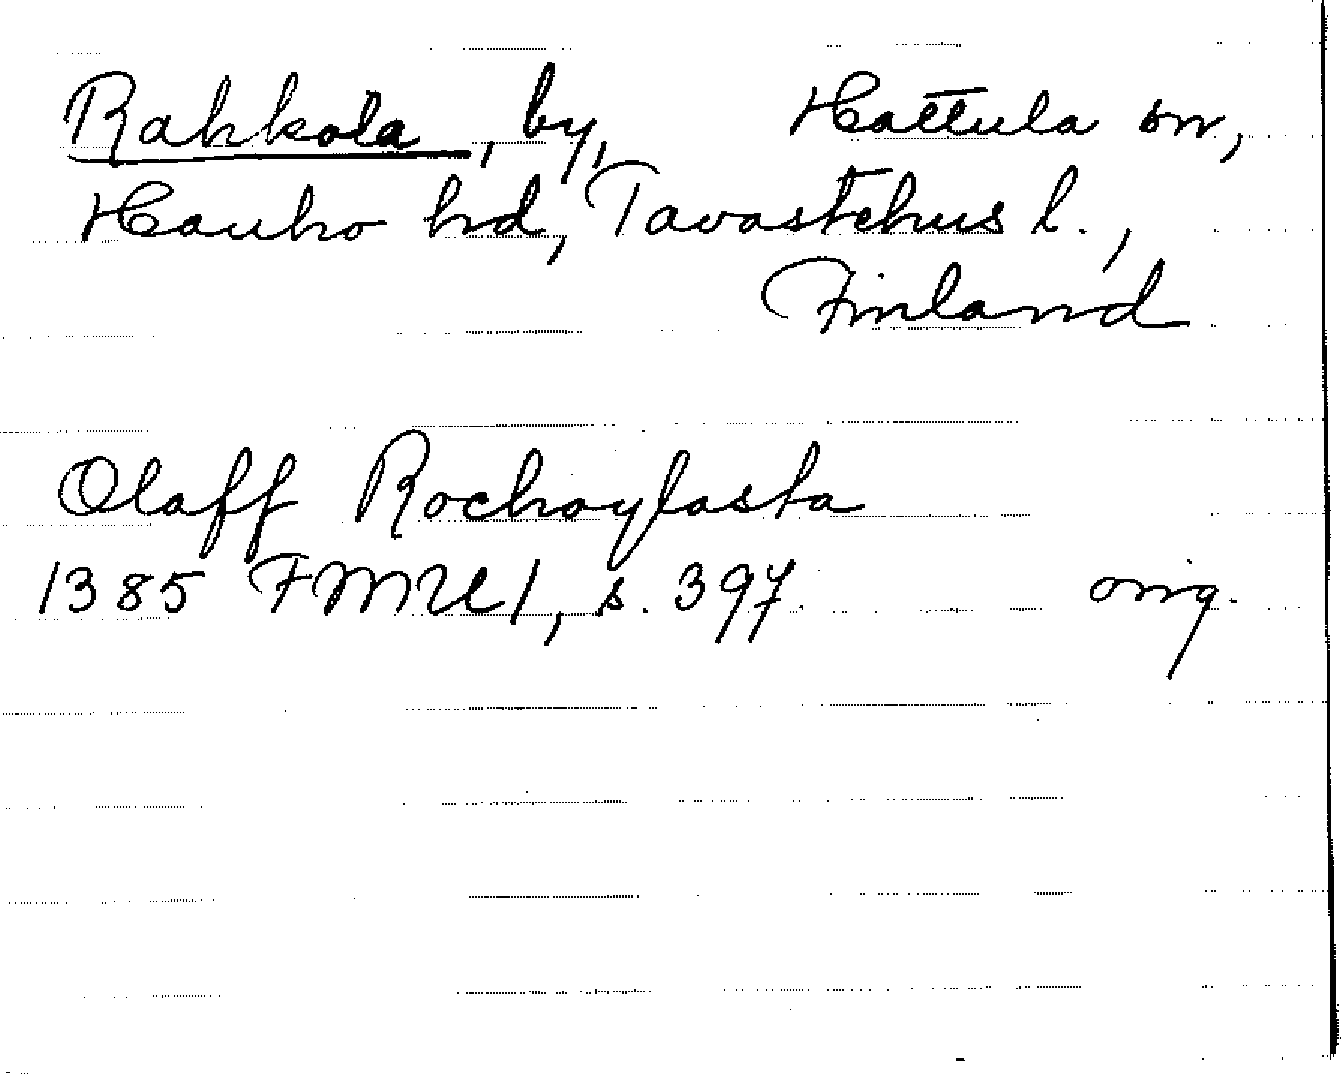 Rahkola, by, Hattula sn,
Hauho hd, Tavastehus l.,
Finland
Olaff Rochoylasta
1385 FMU 1, s. 397 orig.